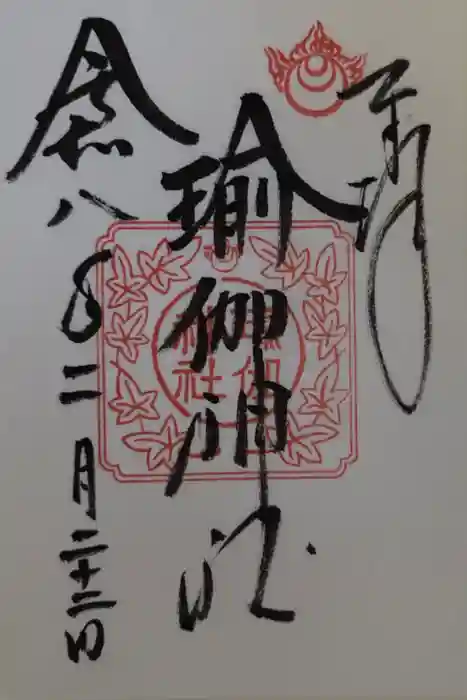 奉拝
瑜伽神社
令和八年二月二十二日
瑜伽
神社